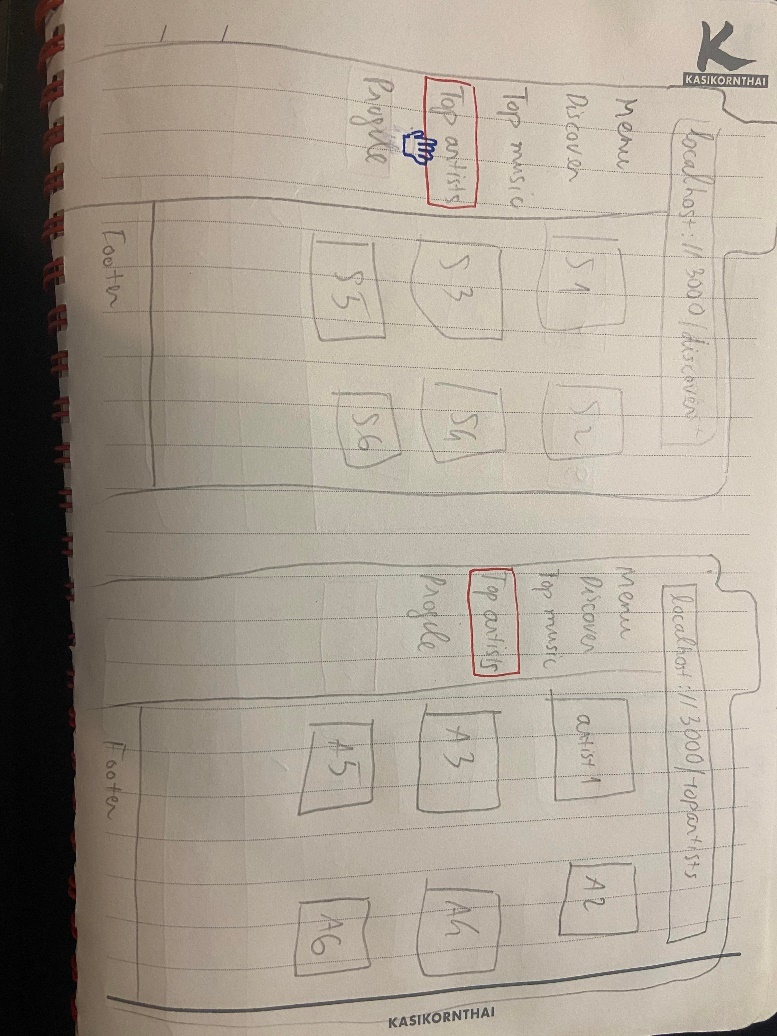 KASIKORNTHAI
localhost:// 3000/discover
Menu
Discover
Top music
Top artists
Profile
S1
S2
S3
S4
S5
S6
Footer
localhost:// 3000/topartists
Menu
Discover
Top music
Top artists
Profile
artist 1
A2
A3
A4
A5
A6
Footer
KASIKORNTHAI